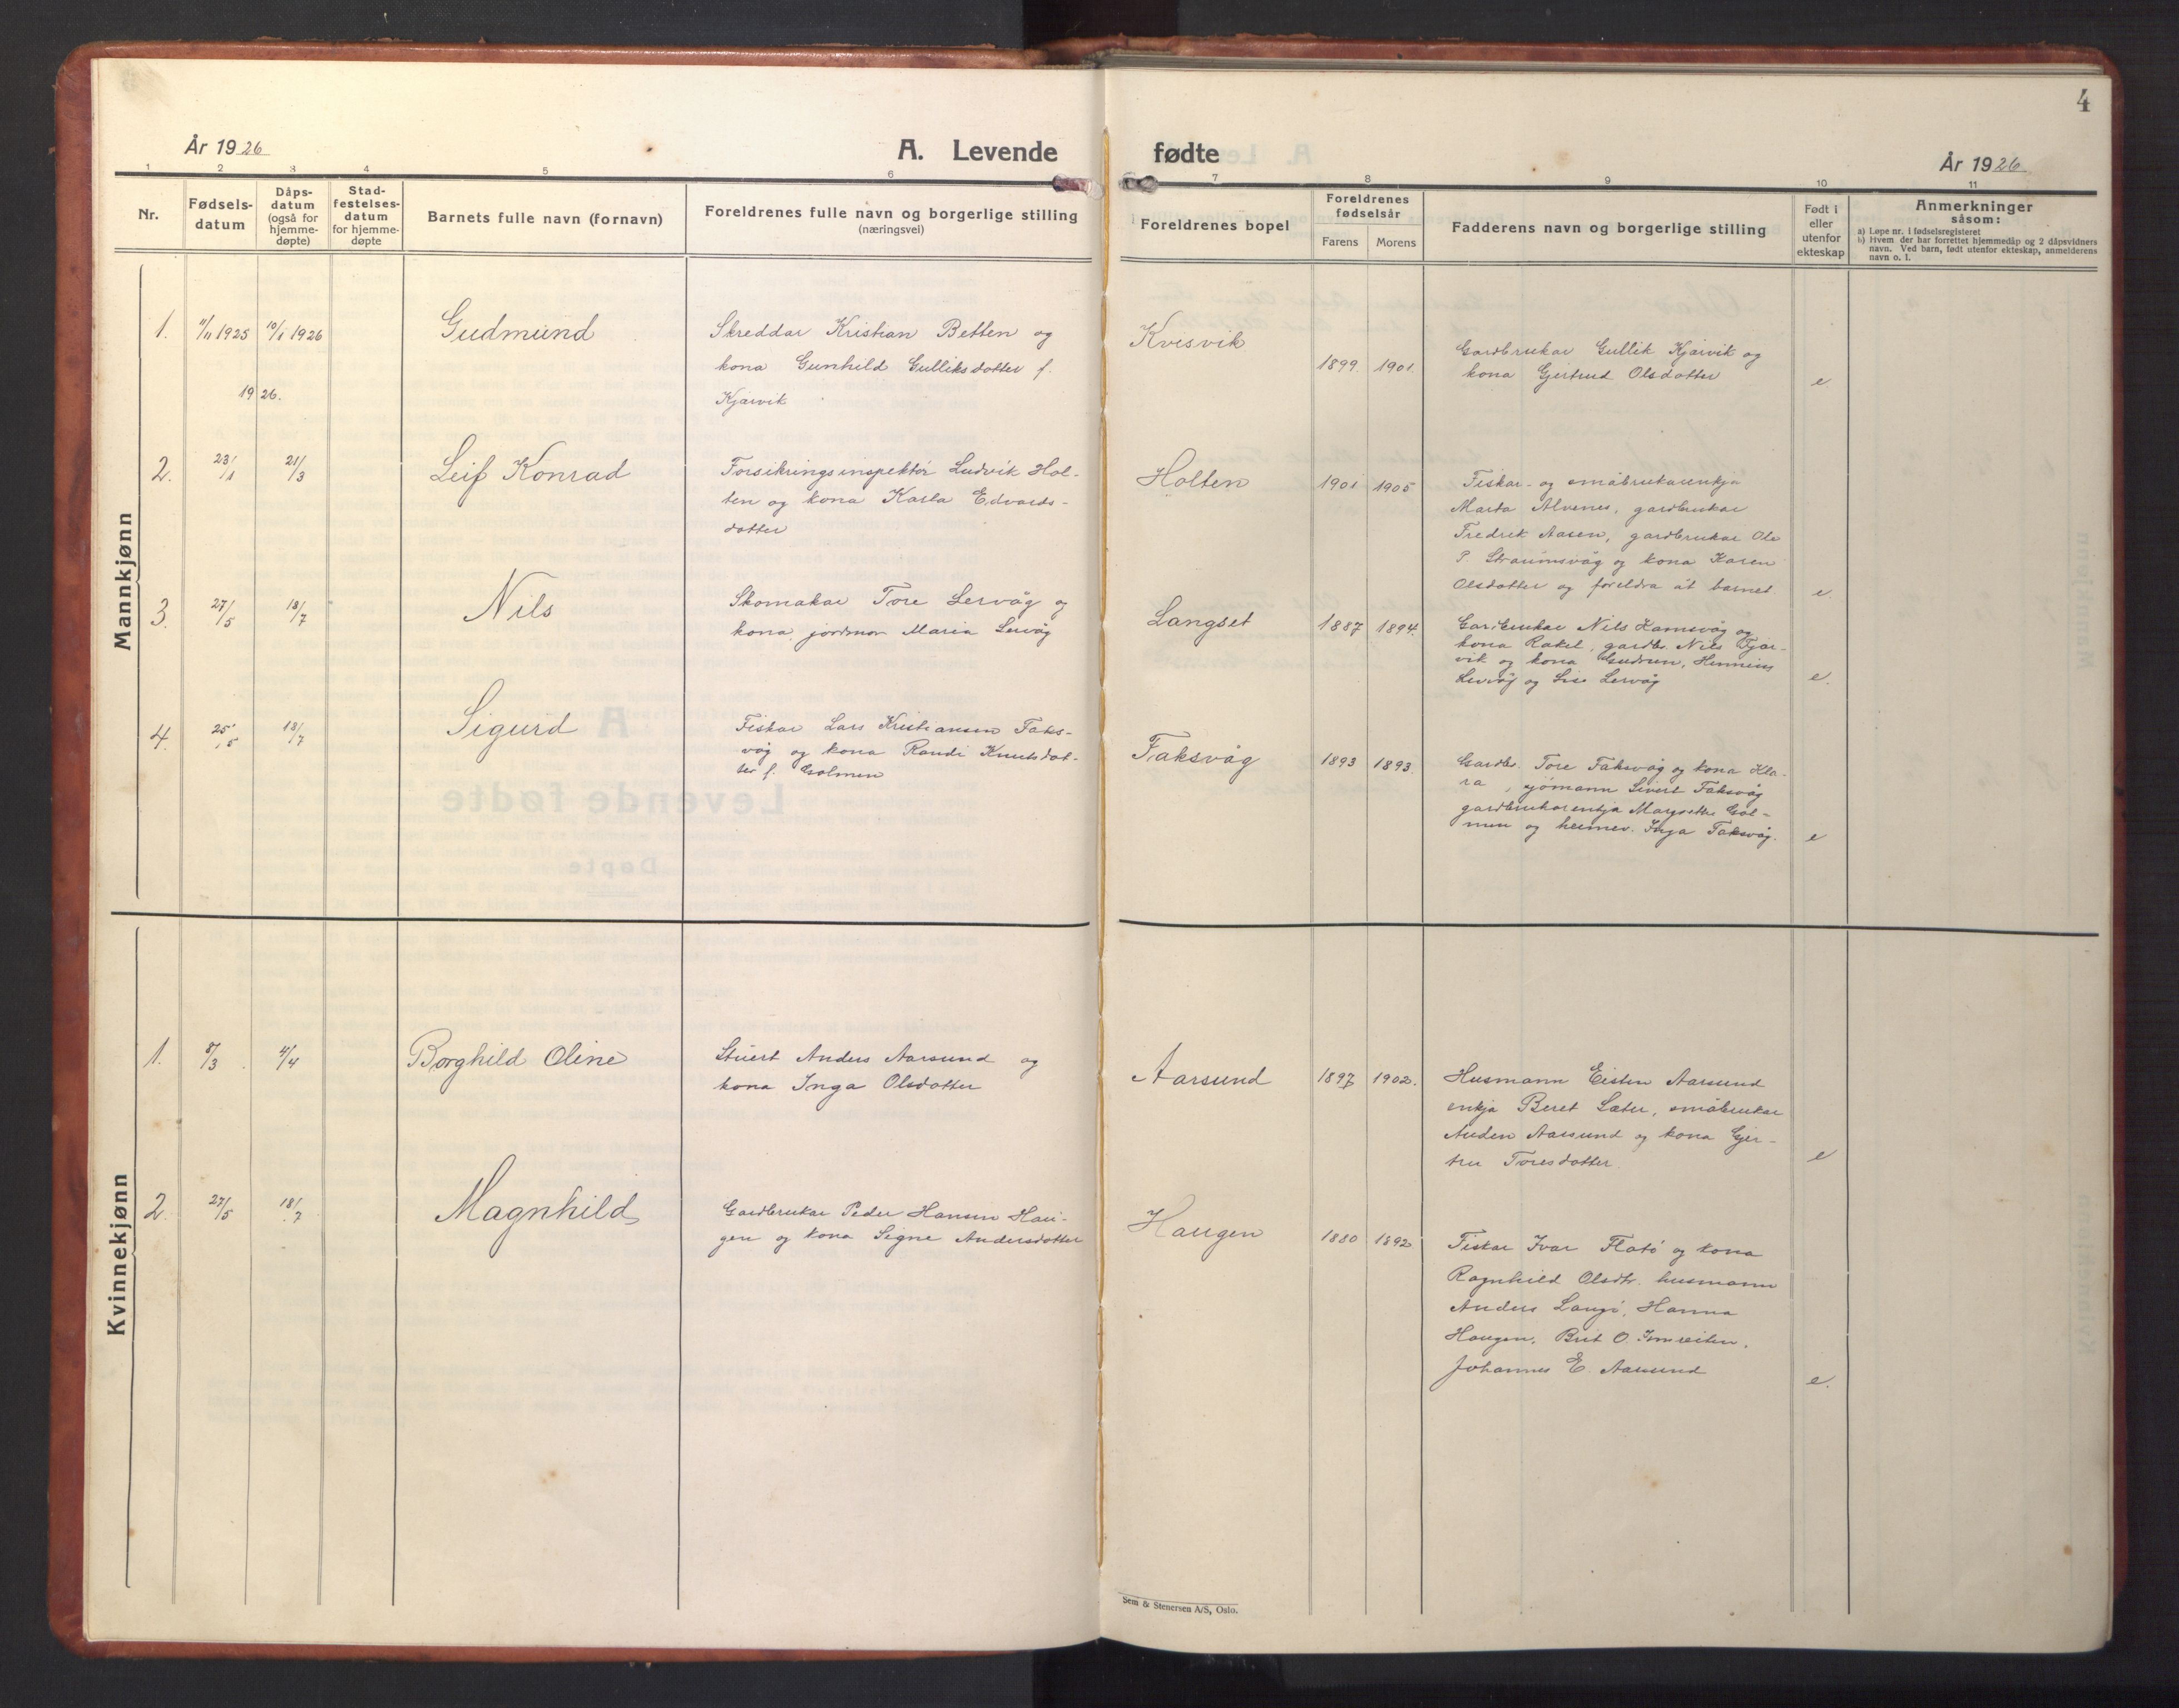 4
År 1926
A. Levende
fødte
År 1926
1 2 3 4 5 6
7 8 9 10 11
Nr.
Fødsels-
datum
Dåps-
datum
(også for
hjemme-
døpte)
Stad-
festelses-
datum
for hjemme-
døpte
Barnets fulle navn (fornavn)
Foreldrenes fulle navn og borgerlige stilling
(næringsvei)
Foreldrenes bopel
Foreldrenes
fødselsår
Farens Morens
Fadderens navn og borgerlige stilling
Født i
eller
utenfor
ekteskap
Anmerkninger
såsom:
a) Løpe nr. i fødselsregisteret
b) Hvem der har forrettet hjemmedåp og 2 dåpsvidners
navn. Ved barn, født utenfor ekteskap, anmelderens
navn o. l.
Mannkjønn
1. 11/11 1925 10/1 1926 Gudmund
Skreddar Kristian Betten og
kona Gunhild Gulliksdotter f.
Kjørvik
Kvisvik
1899. 1901.
Gardbrukar Gullik Kjørvik og
kona Gjertrud Olsdotter
e
1926.
2. 23/1 21/3 Leif Konrad
Forsikringsinspektör Ludvik Hol-
ten og kona Karla Edvards-
dotter
Holten
1901 1905
Fiskar- og småbrukarenkja
Marta Alvenes, gardbrukar
Fredrik Aasen, gardbrukar Ole
P. Straumsvåg og kona Karen
Olsdotter og foreldra åt barnet.
e.
3. 27/5 18/7 Nils
Skomakar Tore Lervåg og
kona, jordmor Maria Lervåg
Langset
1887 1894.
Gardbrukar Nils Hamsvåg og
kona Rakel, gardbr. Nils
vik og kona Gudrun,
Lervåg og Lise Lervåg
e.
4. 25/5 18/7 Sigurd
Fiskar Lars Kristiansen Faks-
våg og kona Randi Knutsdot-
ter f. Golmen
Faksvåg
1893 1893.
Gardbr. Tore Faksvåg og kona Kla-
ra, sjömann Sivert Faksvåg
gardbrukarenkja Margrethe Gol-
men og heimev. Inga Faksvåg.
e
Kvinnekjønn
1. 8/3 4/4 Borghild Oline
Stuert Anders Aarsund og
kona Inga Olsdotter
Aarsund
1897 1902.
Husmann Eisten Aarsund
enkja Beret Sæter, småbrukar
Anders Aarsund og kona Gjer-
tru Toresdotter.
e
2. 27/5 18/7 Magnhild
Gardbrukar Peder Hansen Hau-
gen og kona Signe Andersdotter
Haugen
1880 1892
Fiskar Ivar Flatö og kona
Ragnhild Olsdtr. husmann
Anders Langö, Hanna
Haugen, Brit O.
Johannes E. Aarsund
e.
Sem & Stenersen A/S, Oslo.
A
Levende fødte
Døpte